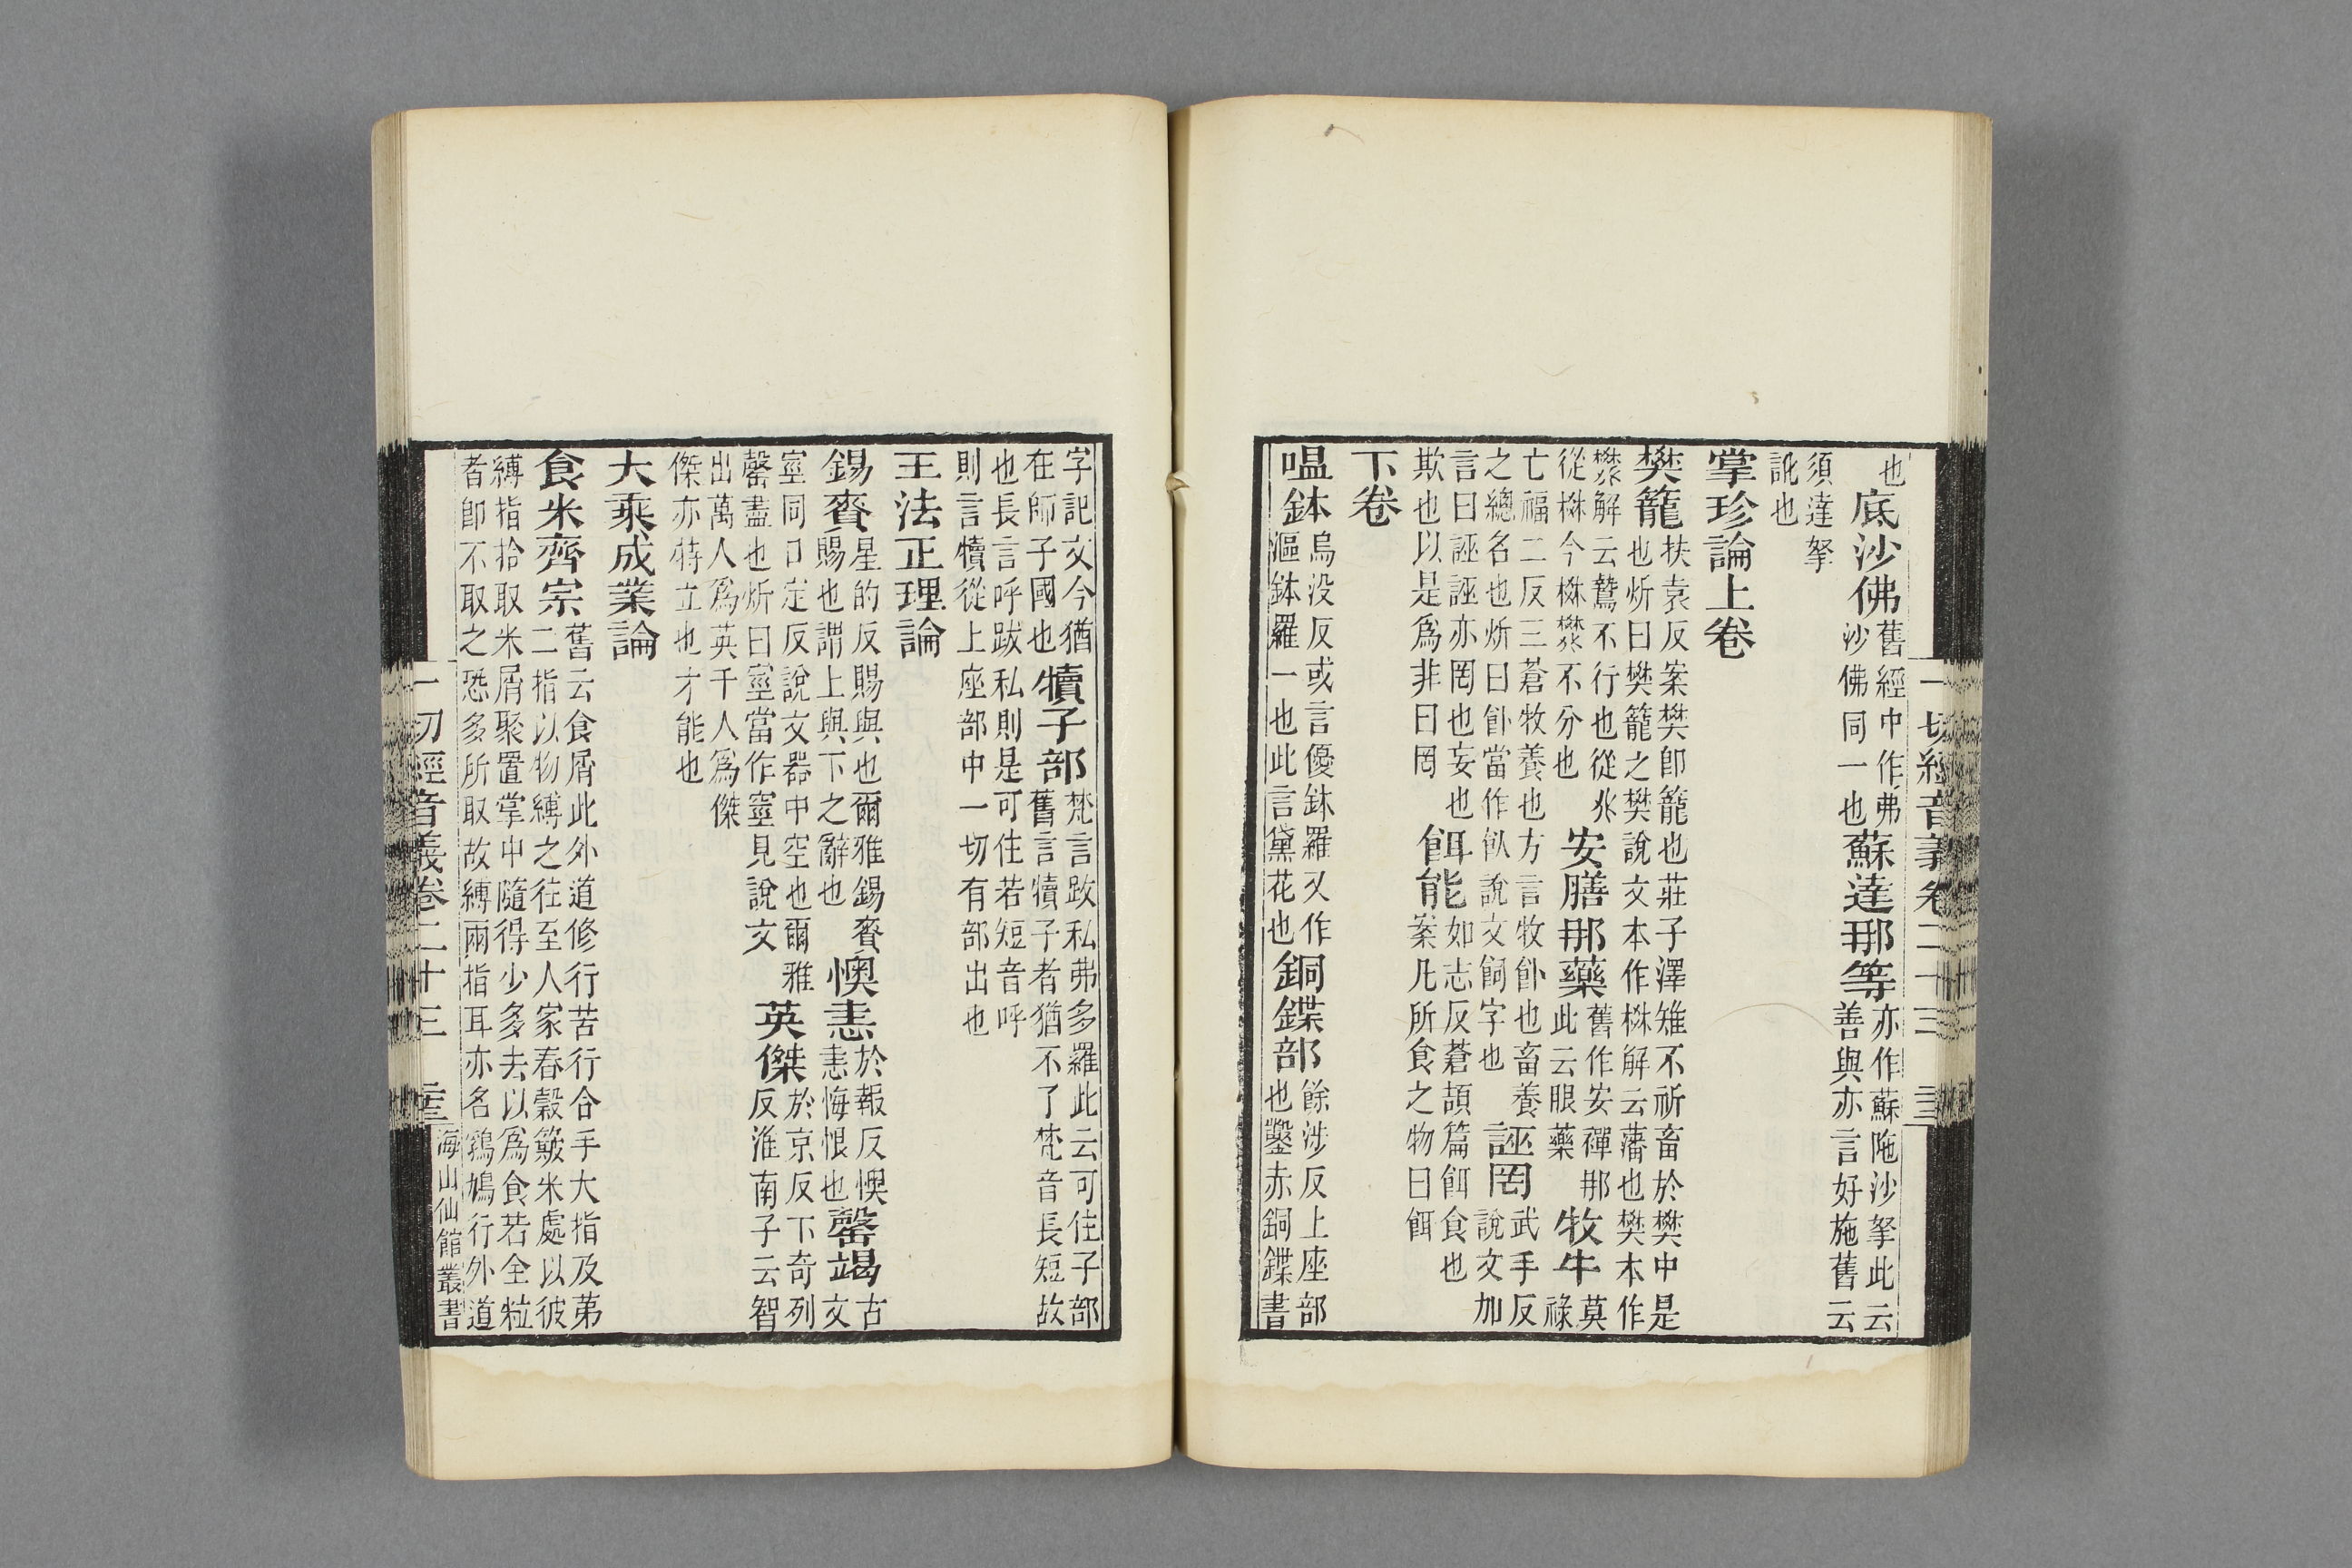 一切經音義卷二十三
也底沙佛舊經中作弗沙佛同一也蘇達那等亦作蘇陁沙拏此云善與亦言好施舊云
須達拏訛也
掌珍論上卷
樊籠扶袁反案樊卽籠也莊子澤雉不祈畜於樊中是也炘曰樊籠之樊說文本作棥解云藩也樊本作
樊解云驇不行也從𠬜從棥今棥樊不分也安膳那藥舊作安禪那此云眼藥牧牛莫祿
亡福二反三蒼牧養也方言牧飤也畜養之總名也炘曰飤當作飤說文飼字也誣罔武手反說文加
言曰誣誣亦罔也妄也欺也以是爲非曰罔餌能如志反蒼頡篇餌食也案凡所食之物曰餌
下卷
嗢鉢烏没反或言優鉢羅又作漚鉢羅一也此言黛花也銅鍱部餘涉反上座部也鑿赤銅鍱書
字記文今猶在師子國也犢子部梵言跋私弗多羅此云可住子部舊言犢子者猶不了梵音長短故
也長言呼跋私則是可住若短音呼則言犢從上座部中一切有部出也
王法正理論
錫賚星的反賜與也爾雅錫賚賜也謂上與下之辭也懊恚於報反懊恚悔恨也罄竭古文
窒同口定反說文器中空也爾雅罄盡也炘曰窒當作窒見說文英傑於京反下奇列反淮南子云智
出萬人爲英千人爲傑傑亦特立也才能也
大乘成業論
食米齊宗舊云食屑此外道修行苦行合手大指及苐二指以物縛之往至人家舂穀簸米處以彼
縛指拾取米屑聚置掌中隨得少多去以爲食若全粒者卽不取之恐多所取故縛兩指耳亦名鵶鳩行外道
一切經音義卷二十三
海山仙館叢書